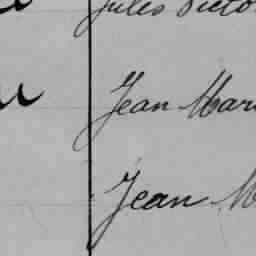 Jules Victo
Jean Mari
Jean M